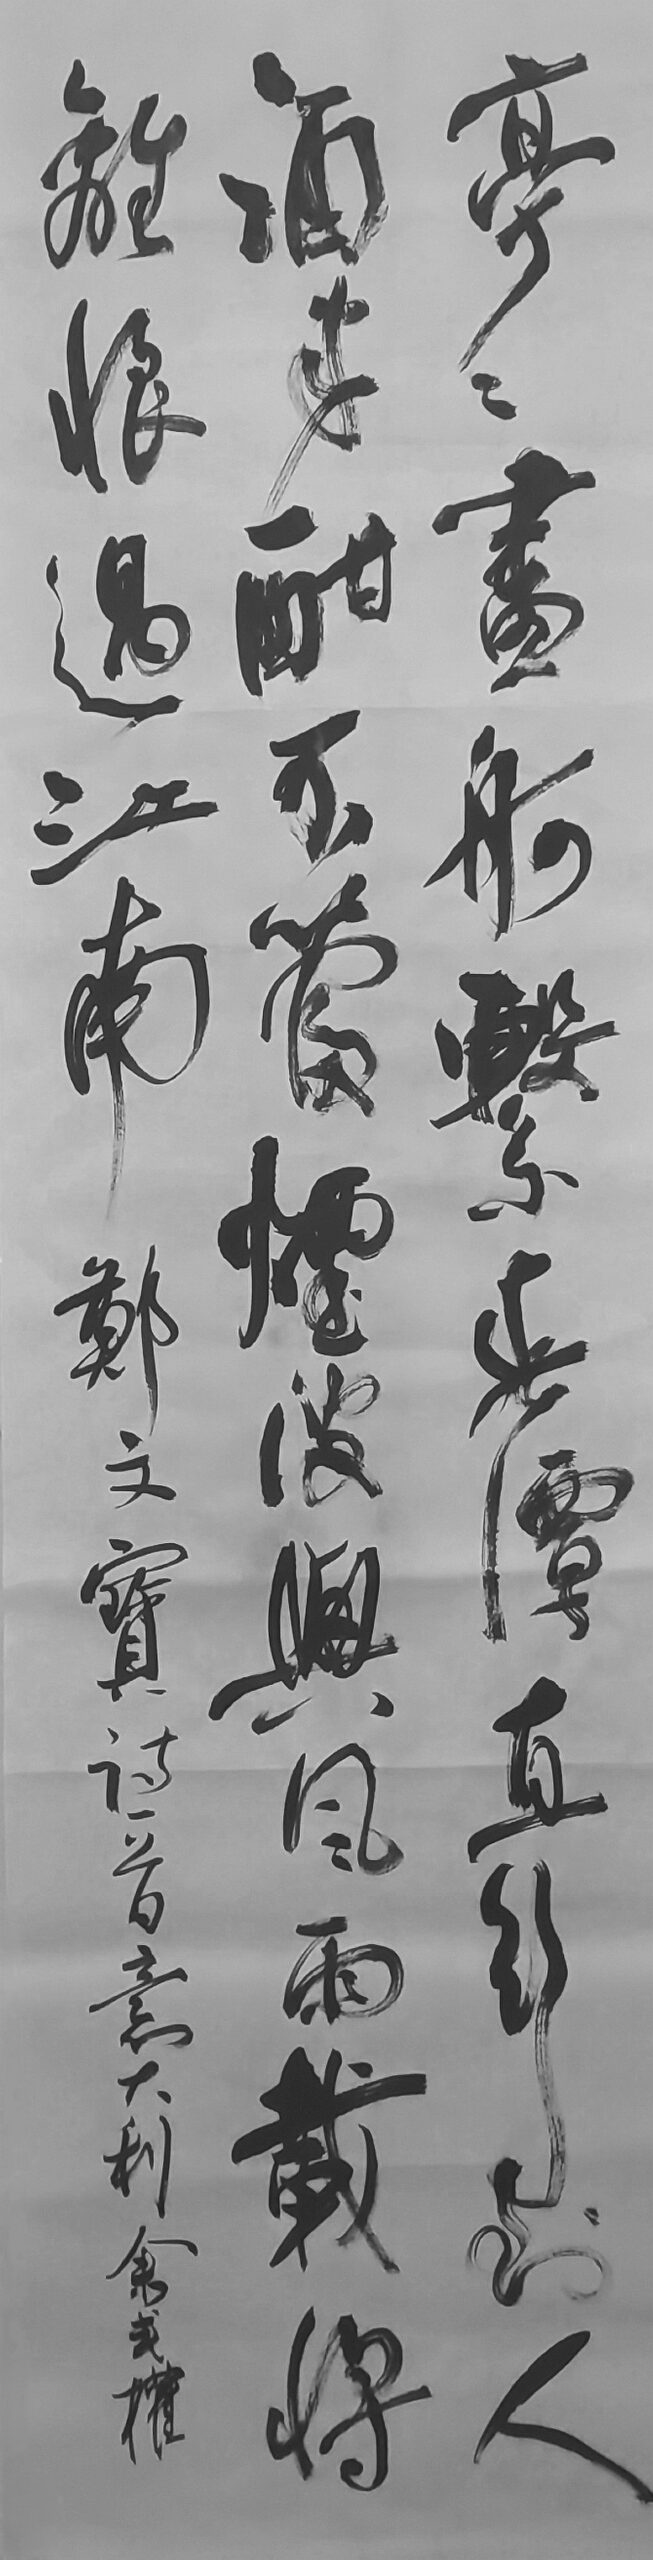 亭〻畫舸繫春潭直到行人
酒半酣不管煙波與風雨載將
離恨過江南 鄭文寶詩一首意大利余